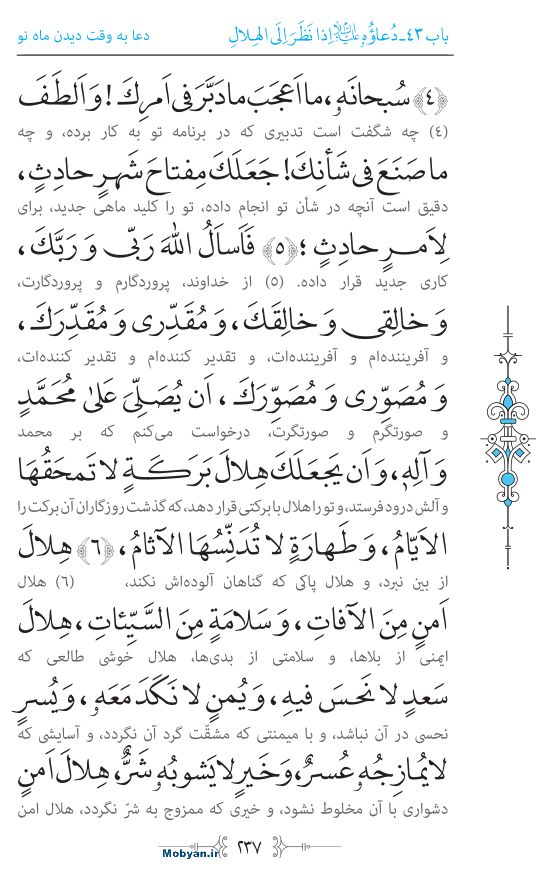 باب ۴۳ـ دُعاؤُهُ عليه‌السلام اِذا نَظَرَ اِلَی الهِلالِ
دعا به وقت دیدن ماه نو
﴿٤﴾ سُبحانَهُ، ما اَعجَبَ ما دَبَّرَ فی اَمرِكَ! وَ اَلطَفَ
(٤) چه شگفت است تدبیری که در برنامه تو به کار برده، و چه
ما صَنَعَ فی شَأنِكَ! جَعَلَكَ مِفتاحَ شَهرٍ حادِثٍ،
دقیق است آنچه در شأن تو انجام داده، تو را کلید ماهی جدید، برای
لِاَمرٍ حادِثٍ؛ ﴿٥﴾ فَاَساَلُ اللّٰهَ رَبّی وَ رَبَّكَ،
کاری جدید قرار داده. (٥) از خداوند، پروردگارم و پروردگارت،
وَ خالِقی وَ خالِقَكَ، وَ مُقَدِّری وَ مُقَدِّرَكَ،
و آفریننده‌ام و آفریننده‌ات، و تقدیر کننده‌ام و تقدیر کننده‌ات،
وَ مُصَوِّری وَ مُصَوِّرَكَ، اَن یُصَلِّیَ عَلیٰ مُحَمَّدٍ
و صورتگرم و صورتگرت، درخواست می‌کنم که بر محمد
وَ آلِهِ، وَ اَن یَجعَلَكَ هِلالَ بَرَكَةٍ لا تَمحَقُهَا
و آلش درود فرستد، و تو را هلال با برکتی قرار دهد، که گذشت روزگاران آن برکت را
الاَیّامُ، وَ طَهارَةٍ لا تُدَنِّسُهَا الآثامُ، ﴿٦﴾ هِلالَ
از بین نبرد، و هلال پاکی که گناهان آلوده‌اش نکند، (٦) هلال
اَمنٍ مِنَ الآفاتِ، وَ سَلامَةٍ مِنَ السَّیِّئاتِ، هِلالَ
ایمنی از بلاها، و سلامتی از بدی‌ها، هلال خوشی طالعی که
سَعدٍ لا نَحسَ فیهِ، وَ یُمنٍ لا نَكَدَ مَعَهُ، وَ یُسرٍ
نحسی در آن نباشد، و با میمنتی که مشقّت گرد آن نگردد، و آسایشی که
لا یُمازِجُهُ عُسرٌ، وَ خَیرٍ لا یَشوبُهُ شَرٌّ، هِلالَ اَمنٍ
دشواری با آن مخلوط نشود، و خیری که ممزوج به شرّ نگردد، هلال امن
۲۳۷
Mobyan.ir